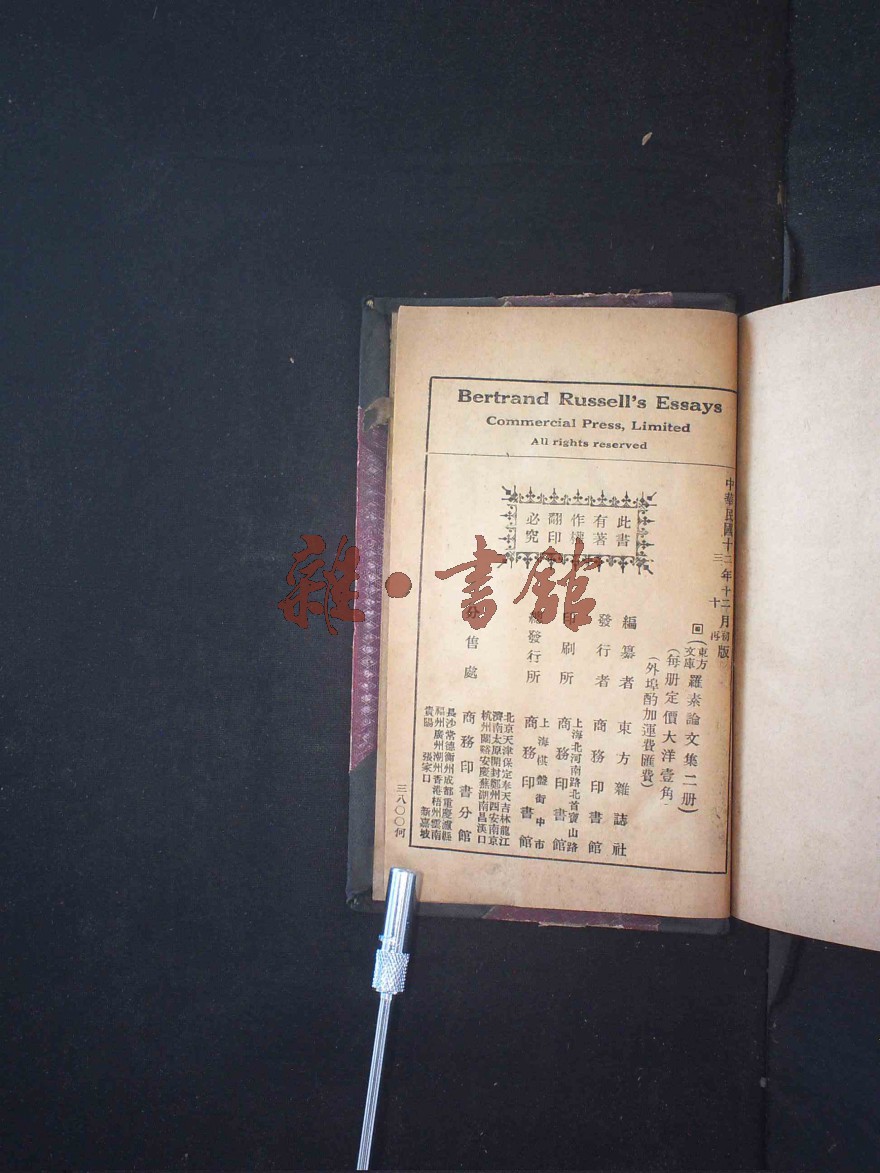 Bertrand Russell's Essays
Commercial Press, Limited
All rights reserved
中華民國十二年十二月初版
三 十 再
此書
有著
作權
翻印
必究
(東方文庫)羅素論文集二册)
(每册定價大洋壹角)
(外埠酌加運費匯費)
編纂者 東方雜誌社
發行者 商務印書館
印刷所 上海北河南路北首寶山路 商務印書館
總發行所 上海棋盤街中市 商務印書館
分售處 商務印書分館
北京天津保定奉天吉林龍江
濟南太原開封鄭州西安南京
杭州蘭谿安慶蕪湖南昌漢口
長沙常德衡州成都重慶瀘縣
福州廣州潮州香港梧州雲南
貴陽 張家口 新嘉坡
三八〇〇何
雜·書館